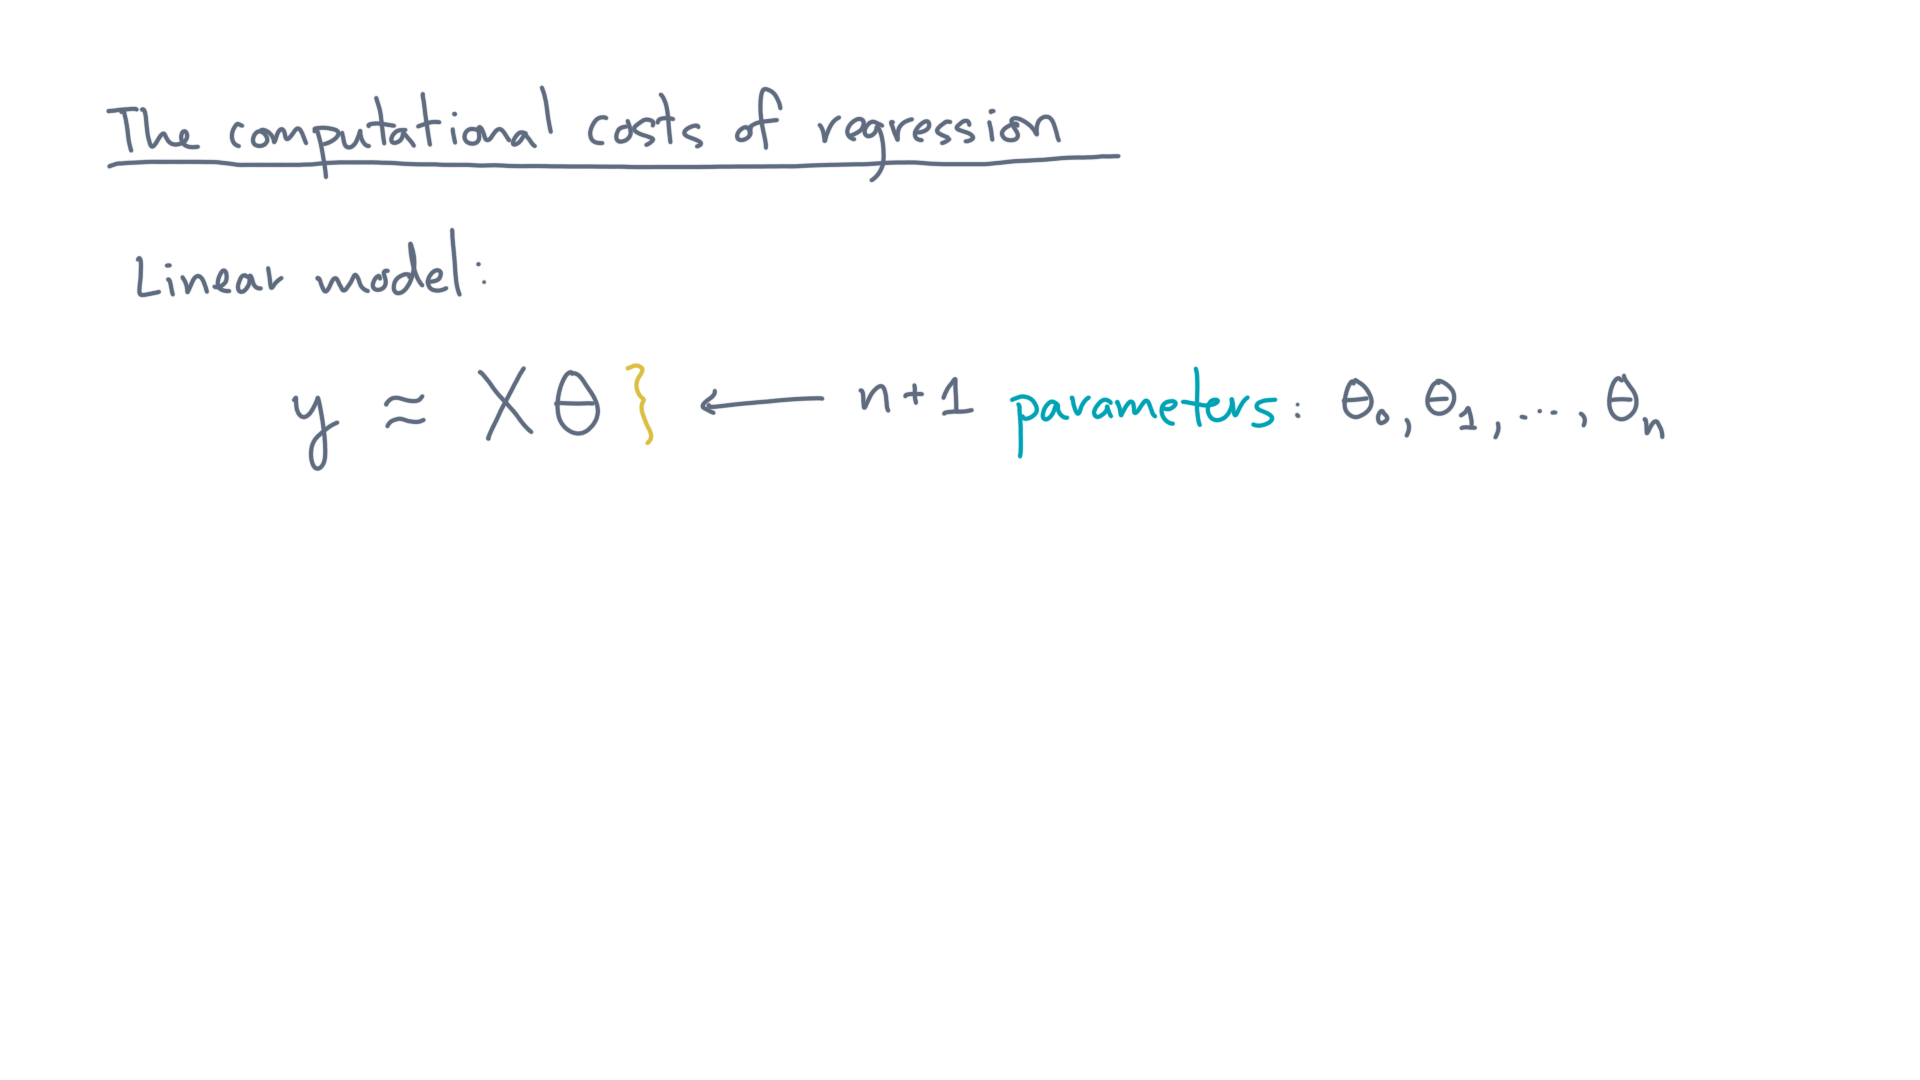 The computational costs of regression
Linear model:
y ≈ Xθ } ← n+1 parameters: θ₀, θ₁, ..., θₙ